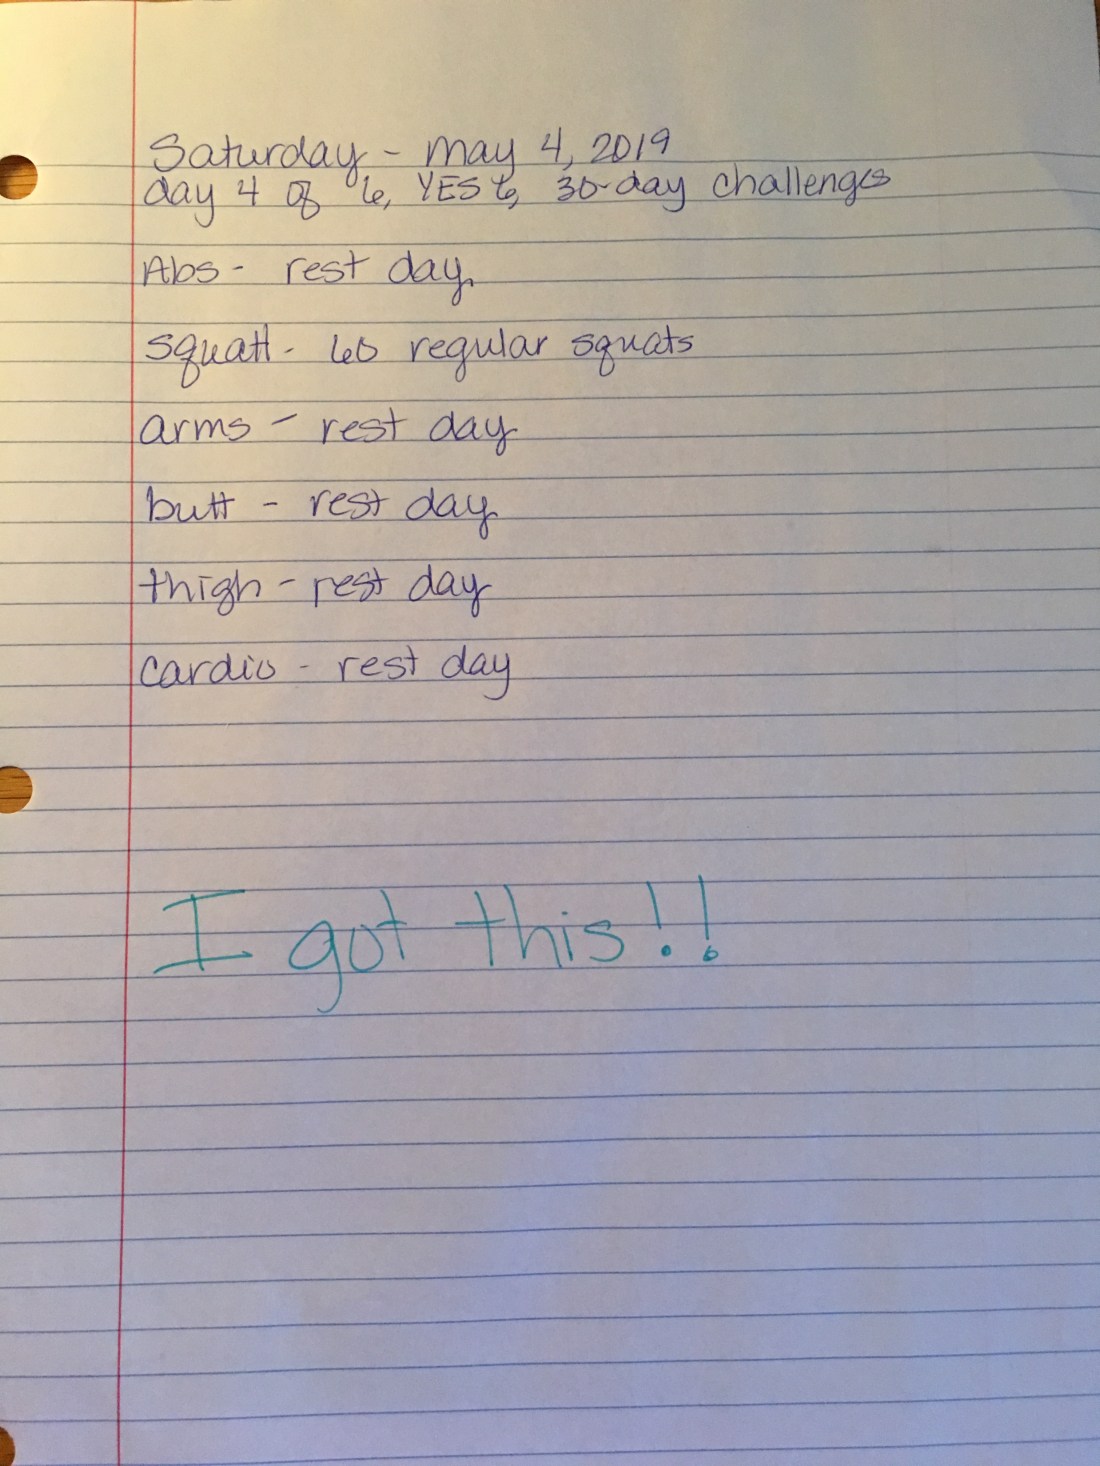 Saturday - May 4, 2019
day 4 of 6, YES 6, 30-day challenges
Abs - rest day
squatt - 60 regular squats
arms - rest day
butt - rest day
thigh - rest day
cardio - rest day
I got this!!